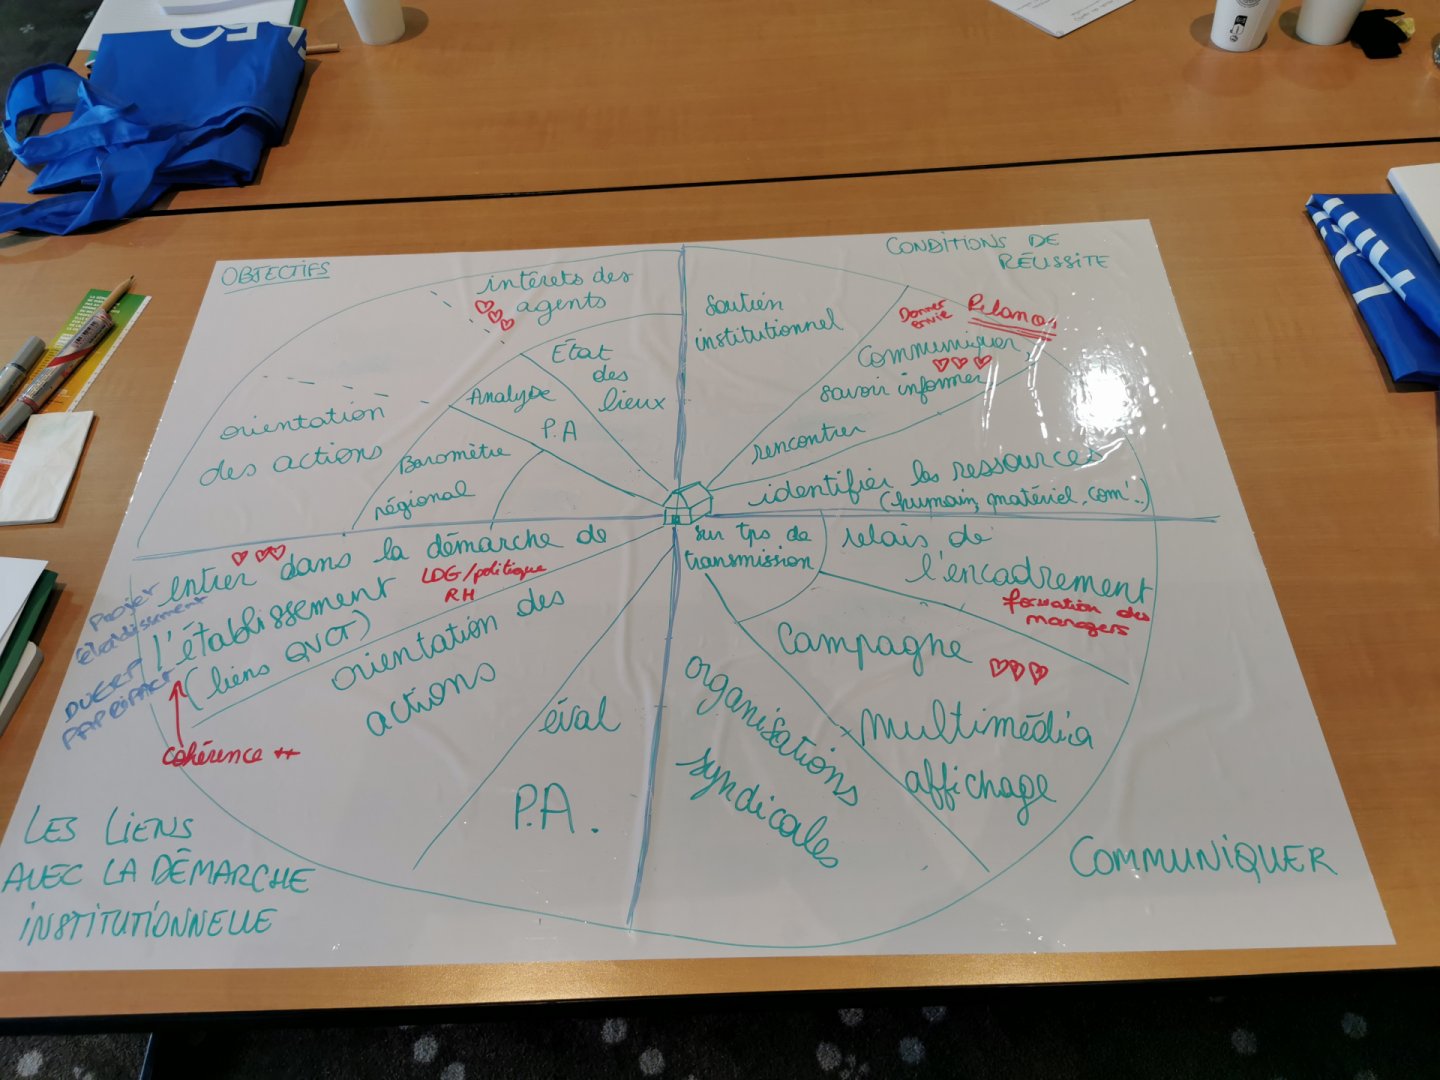 OBJECTIFS
intérets des
agents
État
des
lieux
Analyse
P.A
orientation
des actions
Baromètre
régional
CONDITIONS DE
RÉUSSITE
soutien
institutionnel
Donner
envie
Communiquer,
savoir informer
rencontrer
identifier les ressources
(humain, matériel, com..)
entrer dans la démarche de
l'établissement
(liens QVCT)
LDG/politique
RH
Projet
établissement
DUERP
PAPRIPACT
cohérence ++
orientation des
actions
éval
P.A.
LES LIENS
AVEC LA DÉMARCHE
INSTITUTIONNELLE
sur tps de
transmission
relais de
l'encadrement
formation des
managers
Campagne
multimédia
affichage
organisations
syndicales
COMMUNIQUER